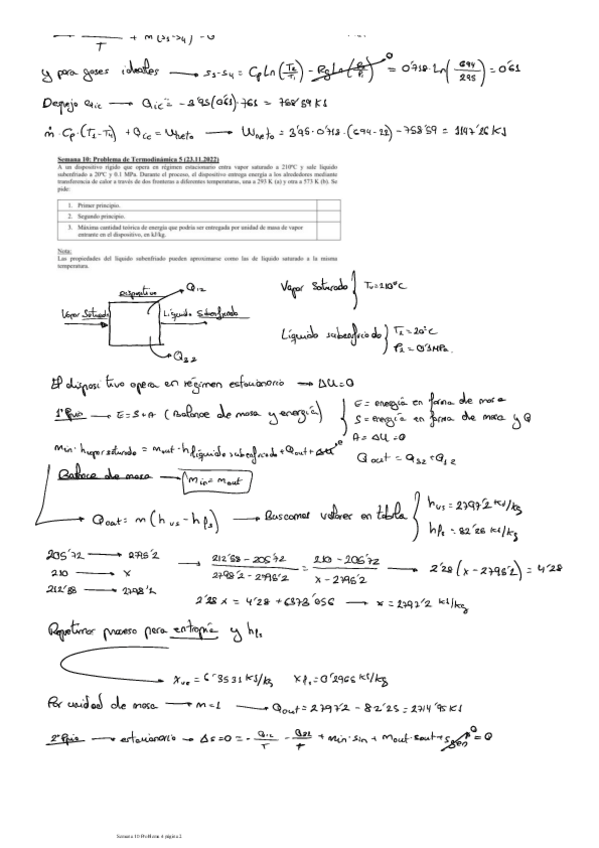 T + m(s₃-s₄) = 0
y para gases ideales → s₃-s₄ = Cp Ln(T₂/T₁) - Rg Ln(P₂/P₁)⁰ = 0'718·Ln(694/295) = 0'61
Despejo → = -3'95(0'61)·761 = 768'59 KJ
ṁ·Cp·(T₃-T₄) + Qcc = Wneto → Wneto = 3'95·0'718·(694-22)-758'59 = 1147'26 KJ
Semana 10: Problema de Termodinámica 5 (23.11.2022)
A un dispositivo rígido que opera en régimen estacionario entra vapor saturado a 210ºC y sale líquido
subenfriado a 20ºC y 0.1 MPa. Durante el proceso, el dispositivo entrega energía a los alrededores mediante
transferencia de calor a través de dos fronteras a diferentes temperaturas, una a 293 K (a) y otra a 573 K (b). Se
pide:
1. Primer principio.
2. Segundo principio.
3. Máxima cantidad teórica de energía que podría ser entregada por unidad de masa de vapor
entrante en el dispositivo, en kJ/kg.
Nota:
Las propiedades del líquido subenfriado pueden aproximarse como las de líquido saturado a la misma
temperatura.
Dispositivo
Vapor Saturado
Líquido Subenfriado
Vapor Saturado } T₁=210°C
Líquido subenfriado } T₂=20°C
P₂=0'1MPa.
El dispositivo opera en régimen estacionario → ΔU=0
1º Ppio → E=S+A (Balance de masa y energía)
E= energía en forma de masa
S= energía en forma de masa y Q
A= ΔU=0
min·hvapor saturado = mout·hlíquido subenfriado + Qout + ΔU⁰
Balance de masa → min=mout
Qout = m(hvs-hls) → Buscamos valores en tabla
hvs = 2797'2 KJ/kg
hls = 82'26 KJ/kg
205'72 → 2796'2
210 → x
212'88 → 2798'2
→ (212'88-205'72)/(2798'2-2796'2) = (210-205'72)/(x-2796'2) → 2'28(x-2796'2)=4'28
2'28x = 4'28 + 6373'056 → x=2797'2 KJ/kg
Repetimos proceso para entropía y hls
= 6'3531 KJ/kg = 0'2965 KJ/kg
Por unidad de masa → m=1 → Qout = 2797'2 - 82'25 = 2714'95 KJ
2º Ppio → estacionario → Δs=0 = -Q/T - Q/T + min·sin + mout·sout + sgen⁰ = 0
Semana 10 Problema 4 página 2